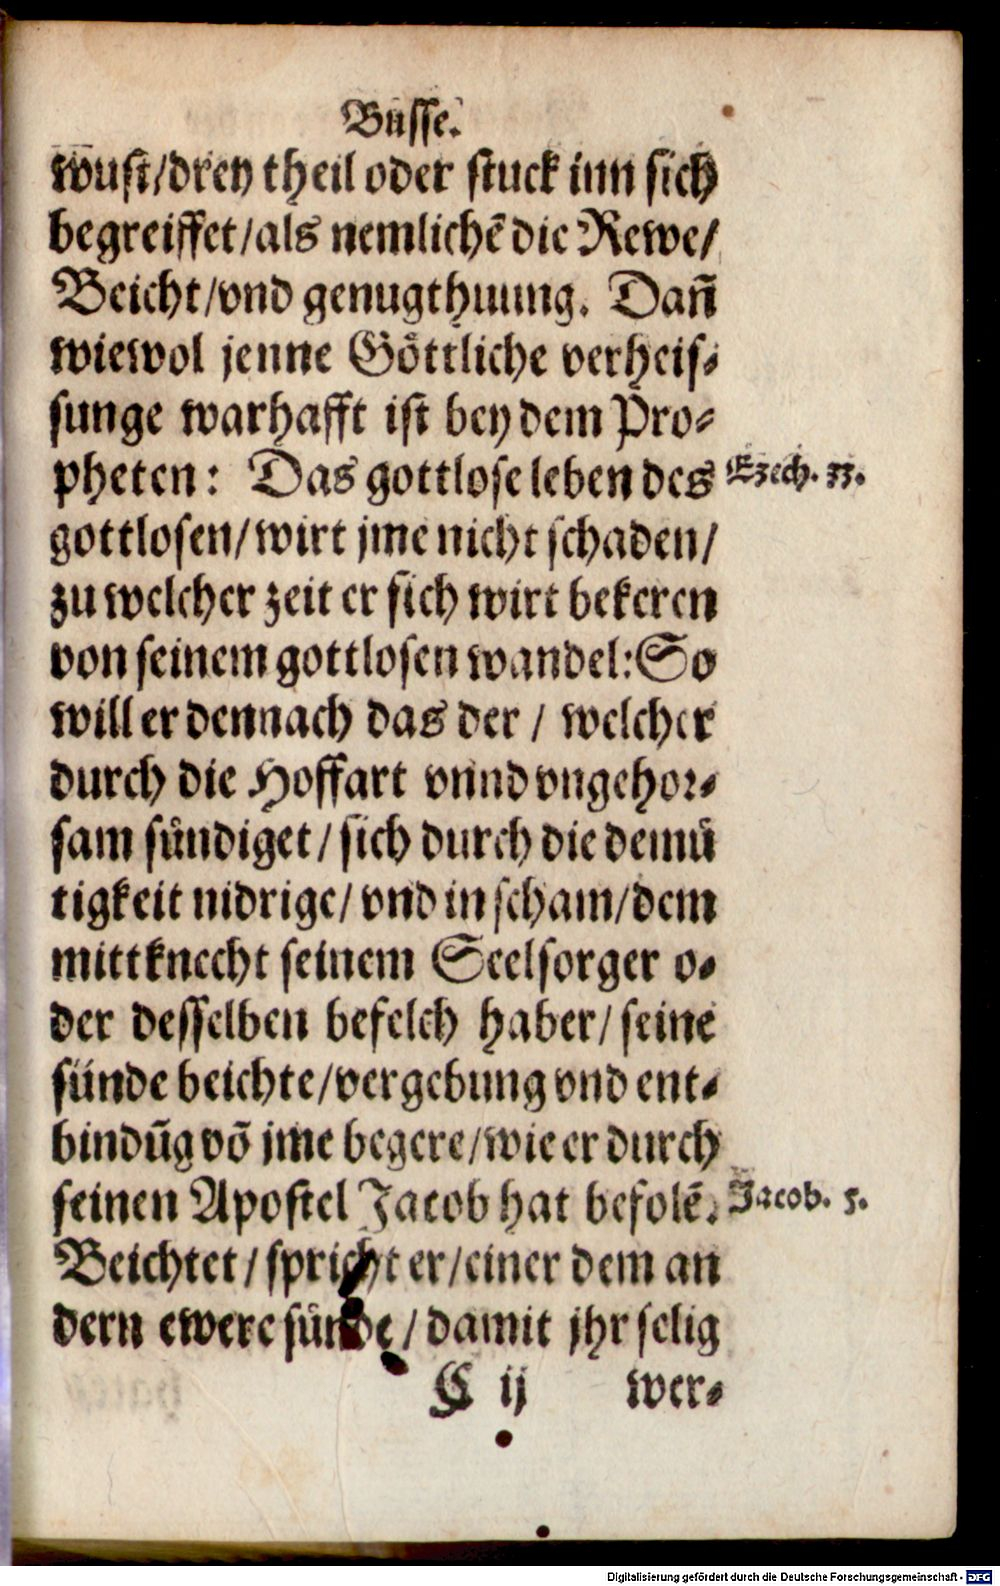 Busse.
wust/drey theil oder stuck inn sich
begreiffet/als nemlichē die Rewe/
Beicht/vnd genugthuung. Dañ
wiewol jenne Göttliche verheis-
sunge warhafft ist bey dem Pro-
pheten: Das gottlose leben des
Ezech. 33.
gottlosen/wirt jme nicht schaden/
zu welcher zeit er sich wirt bekeren
von seinem gottlosen wandel: So
will er dennach das der / welcher
durch die Hoffart vnnd vngehor-
sam sündiget/sich durch die demü
tigkeit nidrige/vnd in scham/dem
mittknecht seinem Seelsorger o-
der desselben befelch haber/seine
sünde beichte/vergebung vnd ent-
bindūg võ jme begere/wie er durch
seinen Apostel Jacob hat befolē.
Jacob. 5.
Beichtet/spricht er/einer dem an
dern ewere sünde/damit jhr selig
C ij wer-
Digitalisierung gefördert durch die Deutsche Forschungsgemeinschaft - DFG